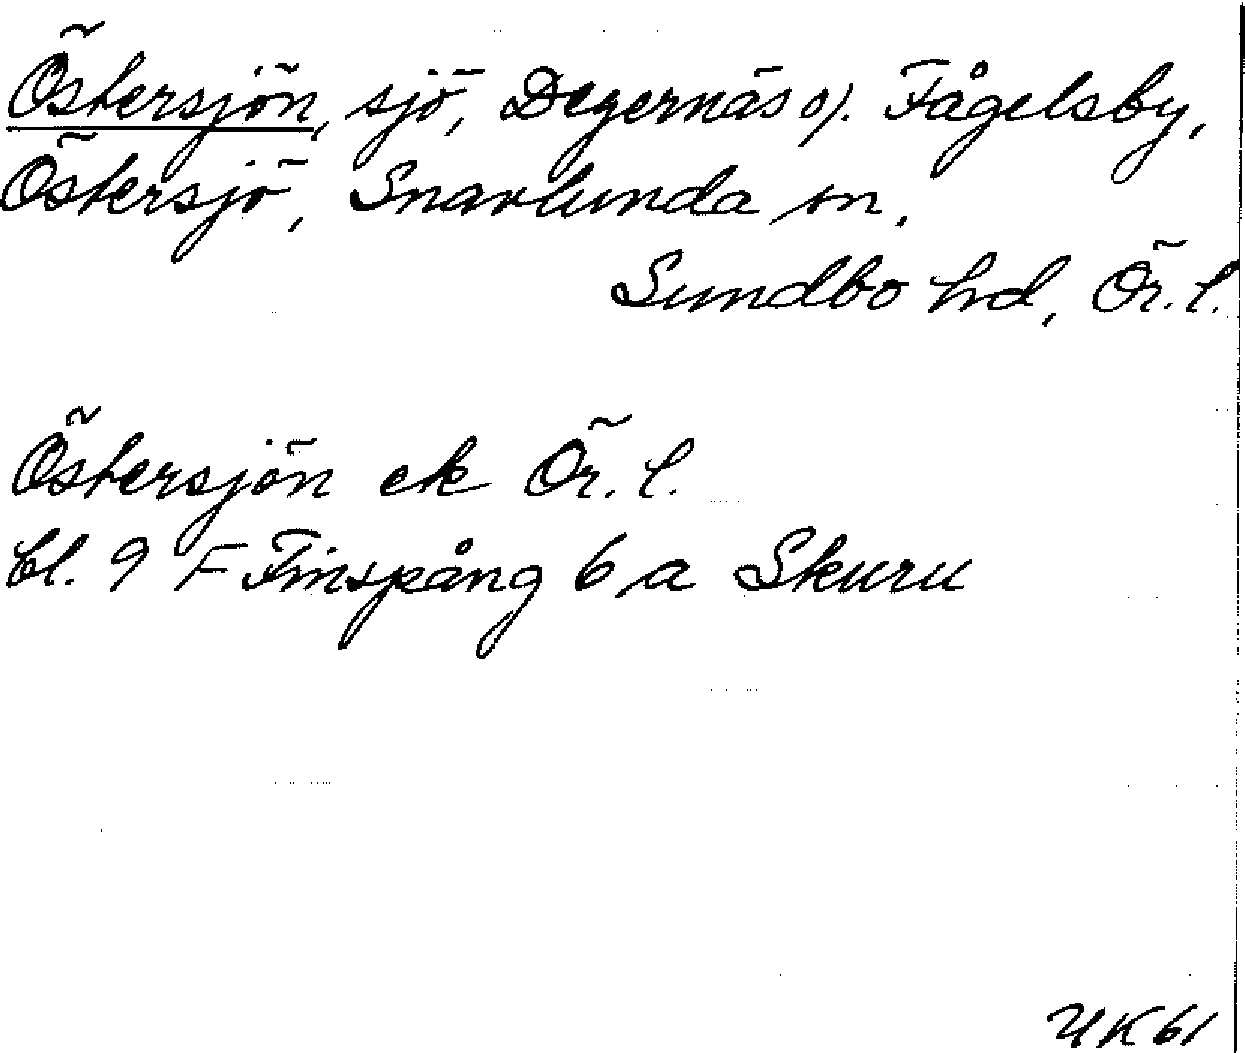 Östersjön, sjö, Degernäs o). Fågelsby,
Östersjö, Snavlunda sn,
Sundbo hd, Ör. l.
Östersjön ek Ör. l.
bl. 9 F Finspång 6 a Skuru
UK 61